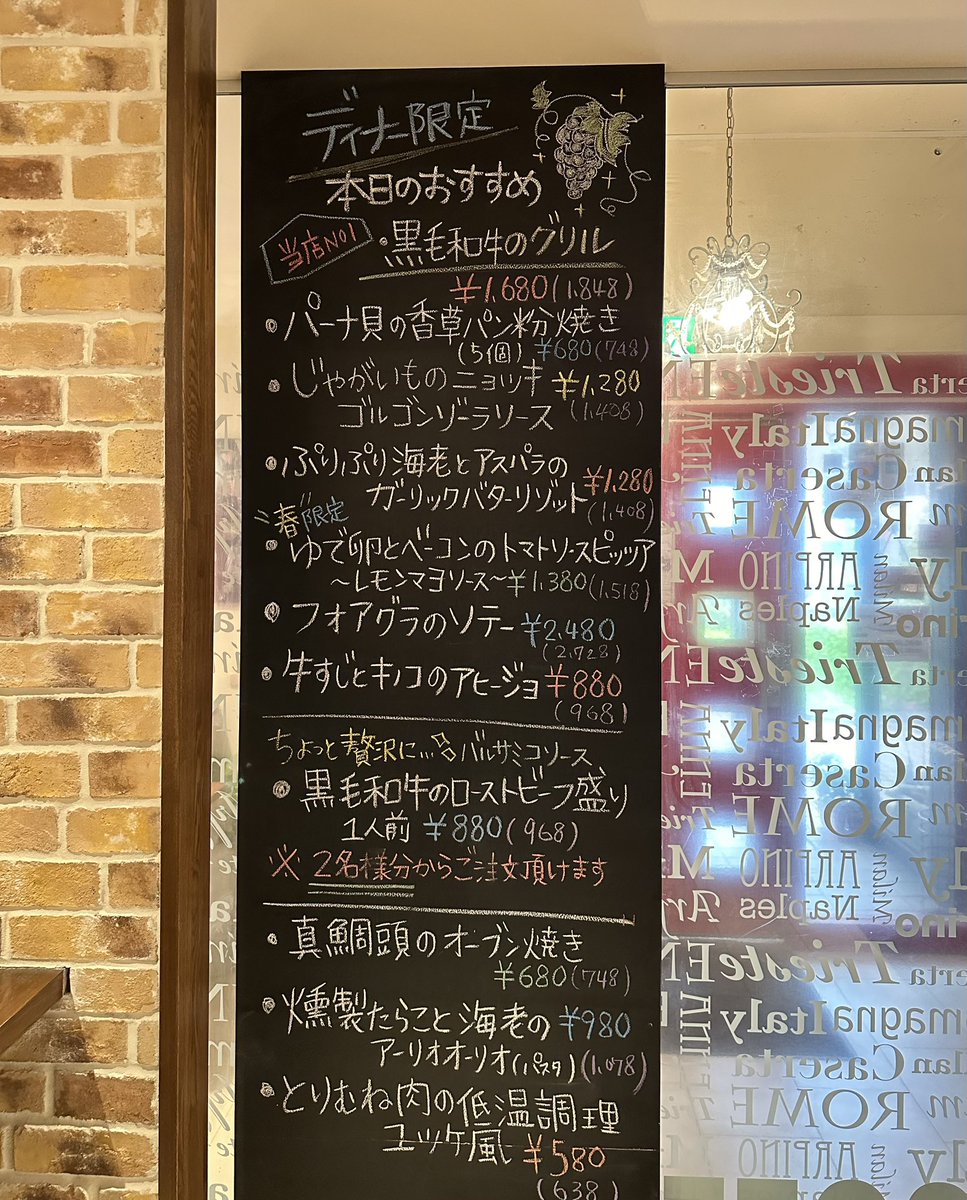 ディナー限定
本日のおすすめ
当店NO1
・黒毛和牛のグリル
¥1,680(1,848)
・パーナ貝の香草パン粉焼き
(5個) ¥680(748)
・じゃがいものニョッキ ¥1,280
ゴルゴンゾーラソース (1,408)
・ぷりぷり海老とアスパラの
ガーリックバターリゾット ¥1,280
(1,408)
春限定
・ゆで卵とベーコンのトマトソースピッツァ
〜レモンマヨソース〜 ¥1,380(1,518)
・フォアグラのソテー ¥2,480
(2,728)
・牛すじとキノコのアヒージョ ¥880
(968)
ちょっと贅沢に…☆バルサミコソース
・黒毛和牛のローストビーフ盛り
1人前 ¥880(968)
※2名様分からご注文頂けます
・真鯛頭のオーブン焼き
¥680(748)
・燻製たらこと海老の ¥980
アーリオオーリオ(パスタ)(1,078)
・とりむね肉の低温調理
ユッケ風 ¥580
(638)
TriesteEN
erta
magnaItaly
Caserta
lan
ROME
ARPINO
Milan
Naples
ly
rino
TriesteEN
erta
magnaItaly
Caserta
lan
ROME
ARPINO
Milan
Naples
ly
rino
TriesteEN
erta
magnaItaly
Caserta
lan
ROME
ARPINO
Milan
ly